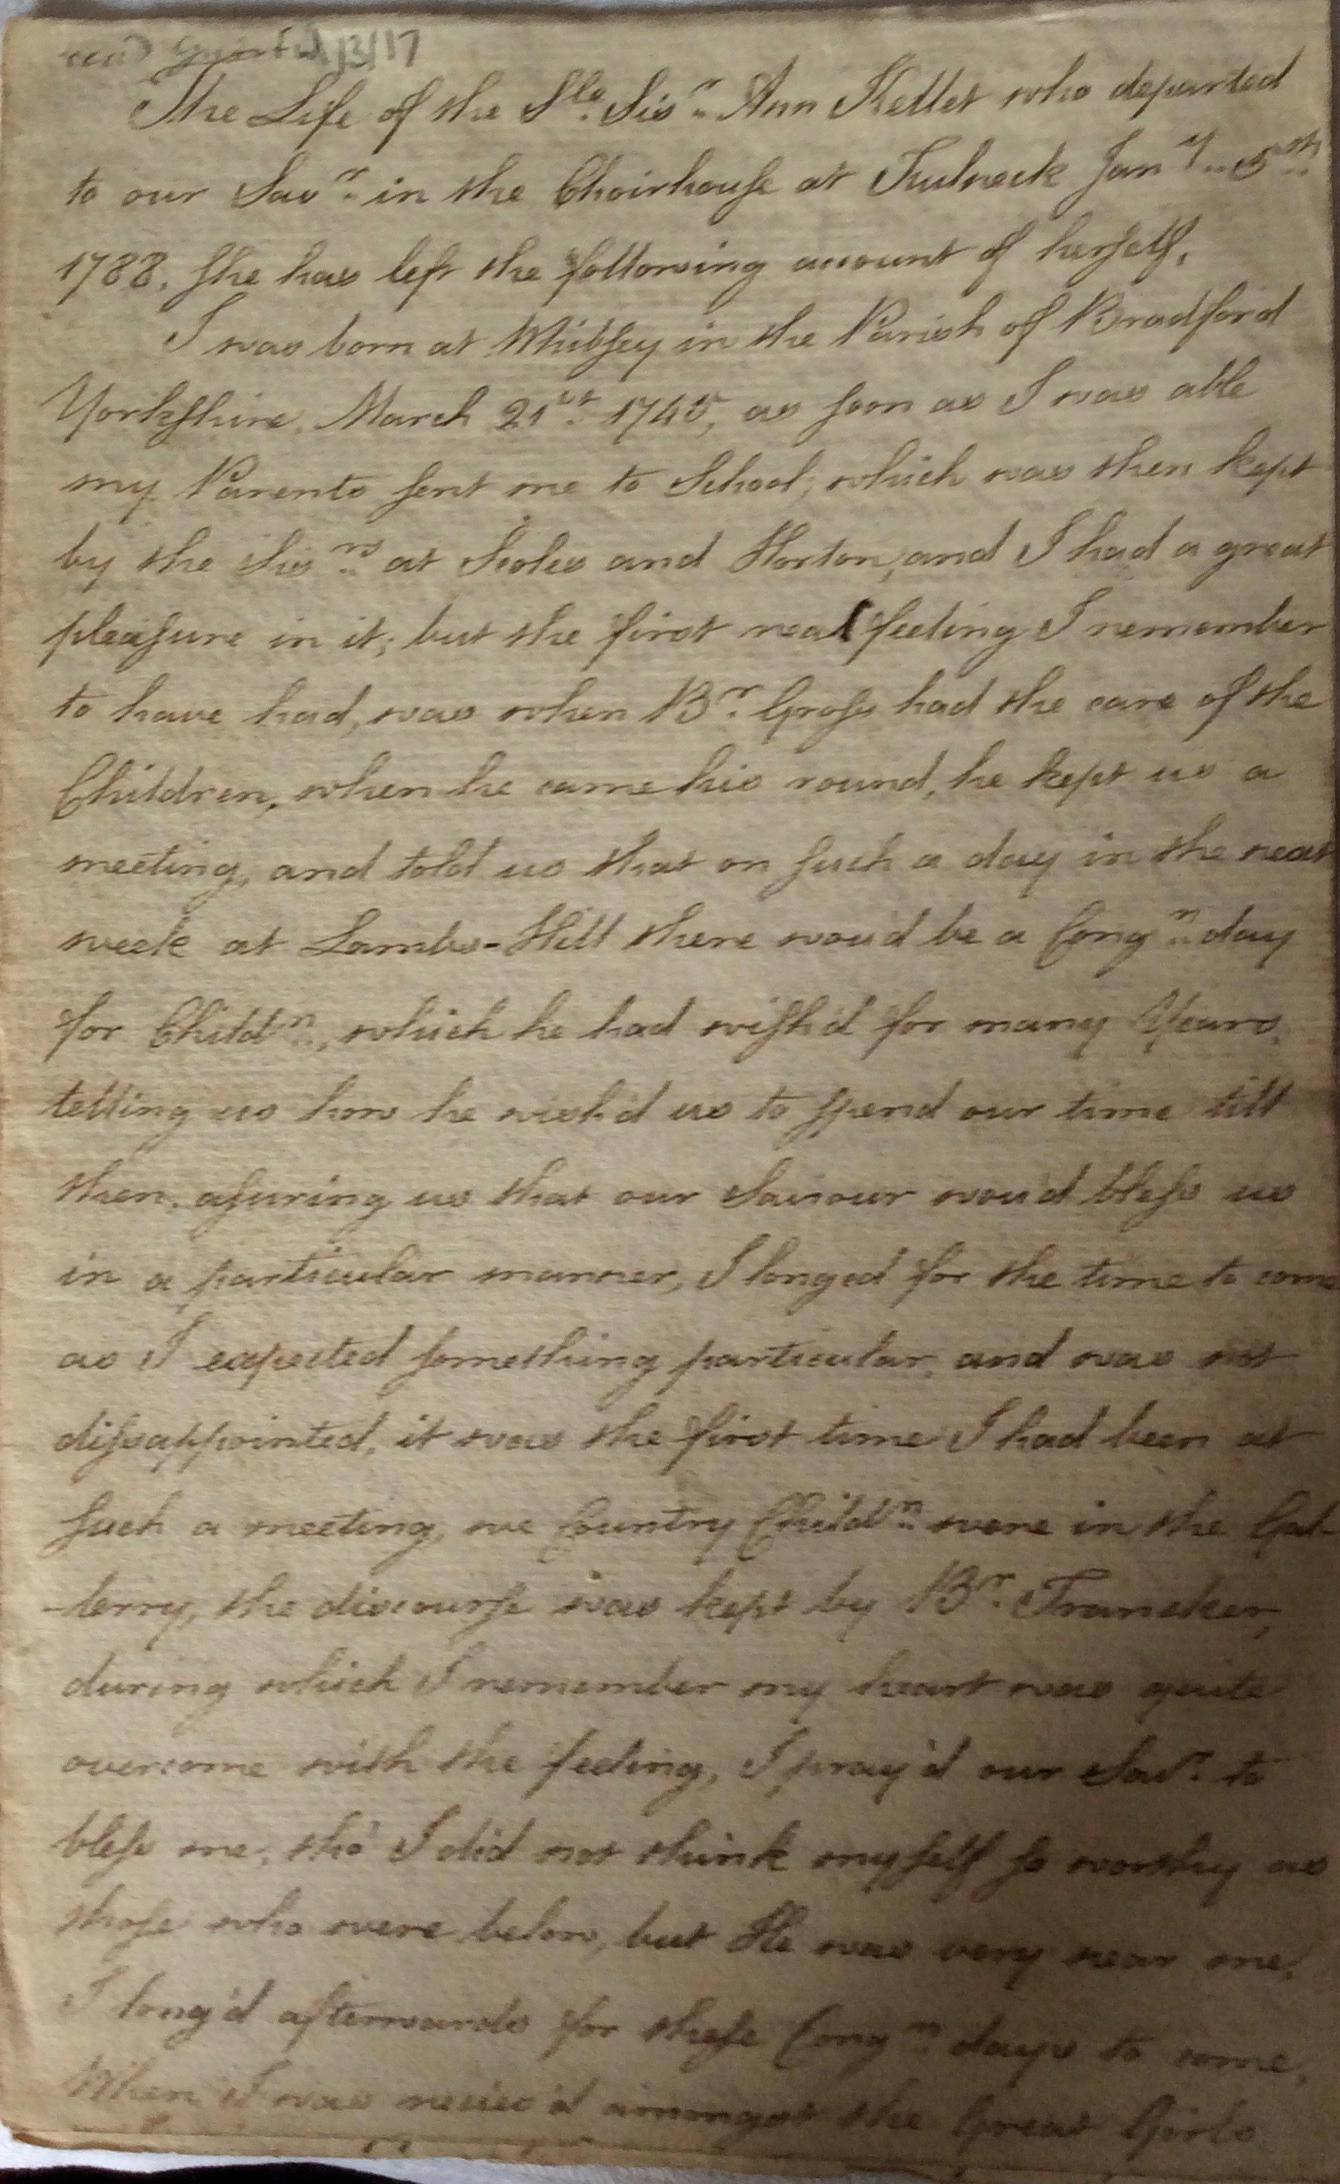 The Life of the Sle. Sisr. Ann Kellet who departed
to our Savr. in the Choirhouse at Fulneck Jany. 5th.
1788. She has left the following account of herself.
I was born at Whibsey in the Parish of Bradford
Yorkshire, March 21st. 1745, as soon as I was able
my Parents sent me to School, which was then kept
by the Sisrs. at Scoles and Horton, and I had a great
pleasure in it; but the first real feeling I remember
to have had, was when Br. Grass had the care of the
Children, when he came his round, he kept us a
meeting, and told us that on such a day in the next
week at Lambs-Hill there wou'd be a Congn. day
for Childn., which he had wish'd for many Years,
telling us how he wish'd us to spend our time till
then, asuring us that our Saviour wou'd bless us
in a particular manner, I longed for the time to come
as I expected something particular, and was not
dissappointed, it was the first time I had been at
such a meeting, we Country Childn. were in the Gal-
-lerry, the discourse was kept by Br. Traneker,
during which I remember my heart was quite
overcome with the feeling, I pray'd our Savr. to
bless me, tho' I did not think myself so worthy as
those who were below, but He was very near me,
I long'd afterwards for these Congn. days to come,
When I was reciev'd amongst the Great Girls